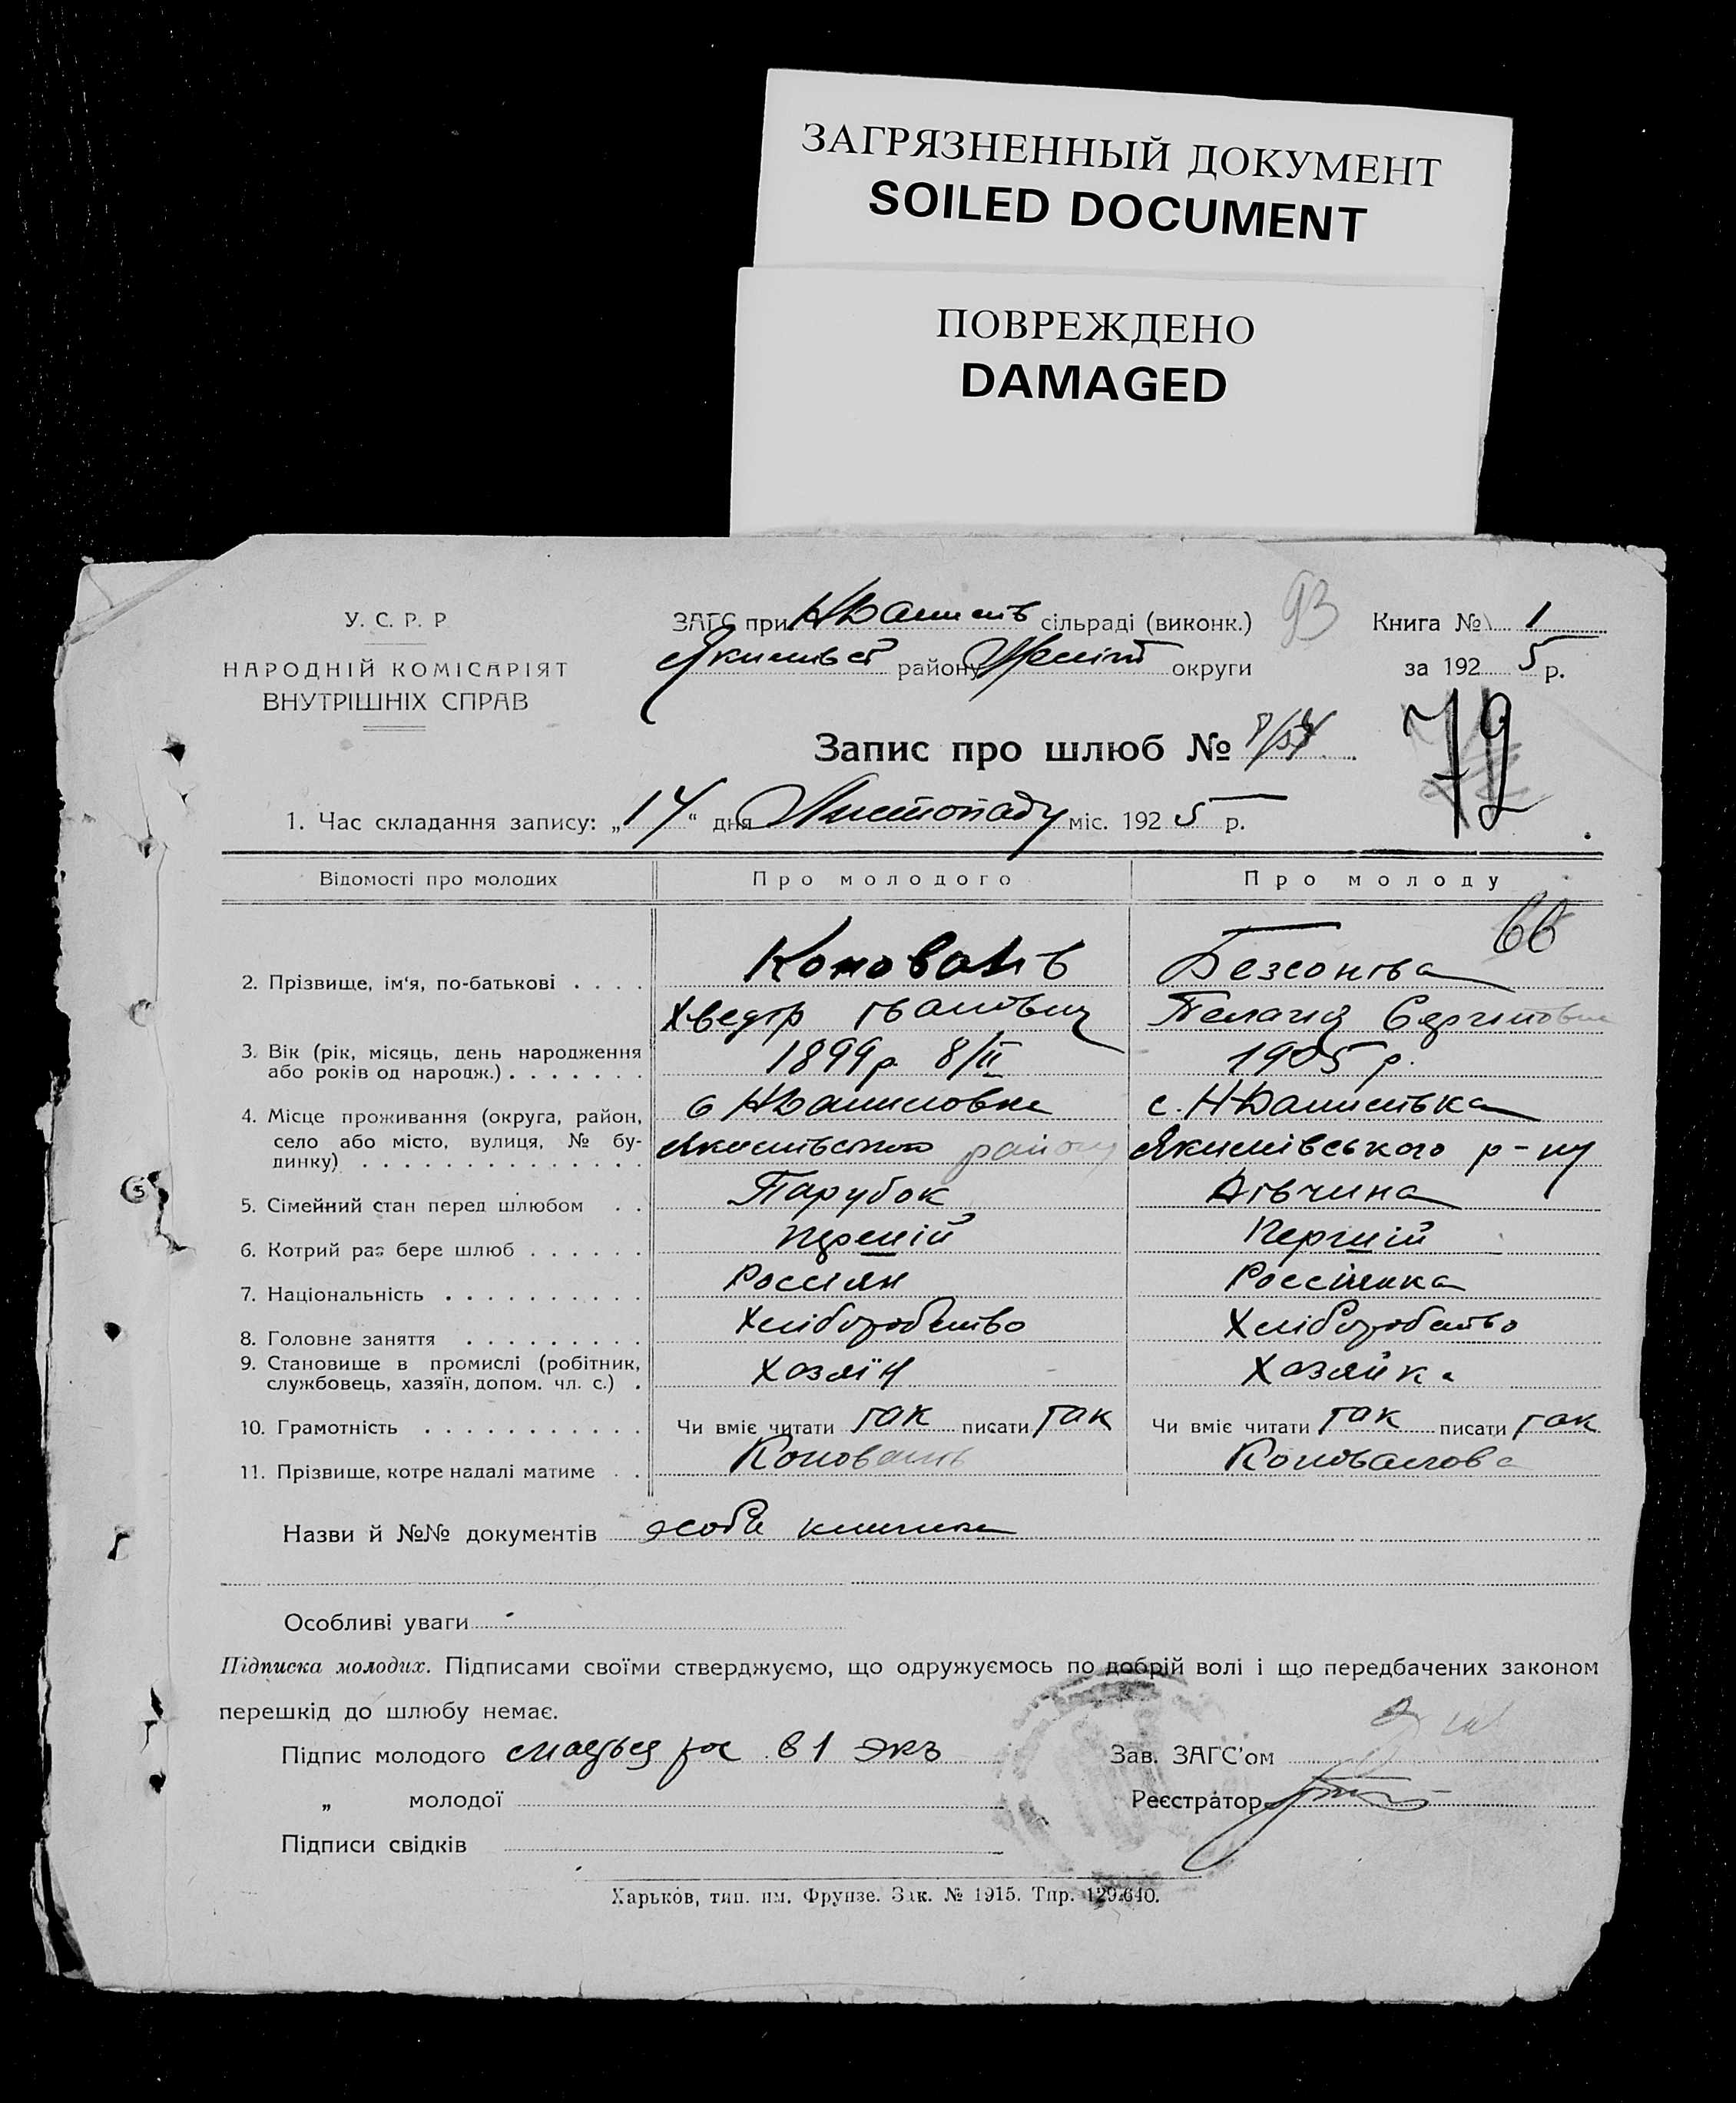 ЗАГРЯЗНЕННЫЙ ДОКУМЕНТ
SOILED DOCUMENT
ПОВРЕЖДЕНО
DAMAGED
У. С. Р. Р
НАРОДНІЙ КОМІСАРІЯТ
ВНУТРІШНІХ СПРАВ
ЗАГС при сільраді (виконк.) 93
району округи
Книга № 1
за 1925 р.
Запис про шлюб № 79
1. Час складання запису: „14“ дня Листопаду міс. 1925 р.
Відомості про молодих Про молодого Про молоду
66
2. Прізвище, ім‘я, по-батькові . . . . Коновалів Безсонова
Хведір Іванович Пелагія
3. Вік (рік, місяць, день народження
або років од народж.) . . . . . . . 1899 р 8/II 1905 р.
4. Місце проживання (округа, район, с. НДанилівка
село або місто, вулиця, № бу-
динку) . . . . . . . . . . . . . . району Якимівського р-ну
5. Сімейний стан перед шлюбом . . Парубок Дівчина
6. Котрий раз бере шлюб . . . . . . Перший Перший
7. Національність . . . . . . . . . . Россіян Россіянка
8. Головне заняття . . . . . . . . . Хліборобство Хліборобство
9. Становище в промислі (робітник,
службовець, хазяїн, допом. чл. с.) . Хозяїн Хозяйка
10. Грамотність . . . . . . . . . . . Чи вміє читати так писати так Чи вміє читати так писати так
11. Прізвище, котре надалі матиме . . Коновалів Коновалова
Назви й №№ документів особ. книжка
Особливі уваги
Підписка молодих. Підписами своїми стверджуємо, що одружуємось по добрій волі і що передбачених законом
перешкід до шлюбу немає.
Підпис молодого в 1 экз Зав. ЗАГС'ом
„ молодої Реєстратор
Підписи свідків
Харьков, тип. им. Фрунзе. Зак. № 1915. Тир. 129.640.